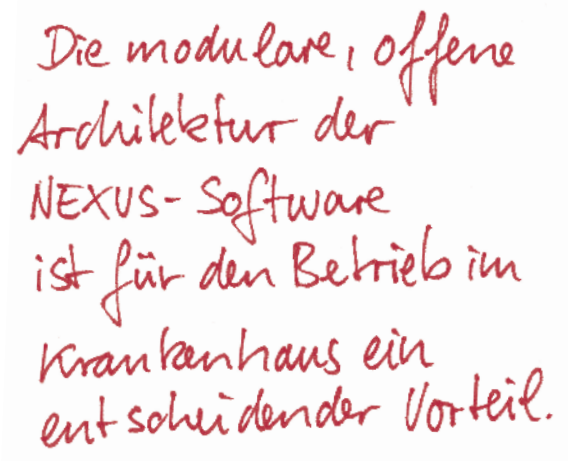 Die modulare, offene
Architektur der
NEXUS-Software
ist für den Betrieb im
Krankenhaus ein
entscheidender Vorteil.